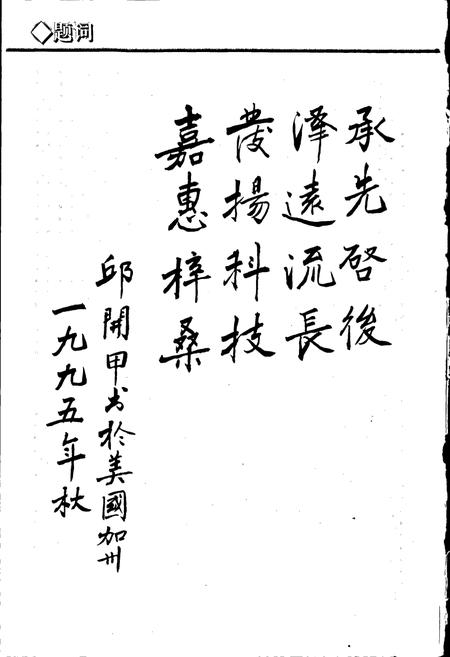 ◇题词
承先啓後
泽遠流長
發揚科技
嘉惠梓桑
邱開甲书於美國加州
一九九五年秋